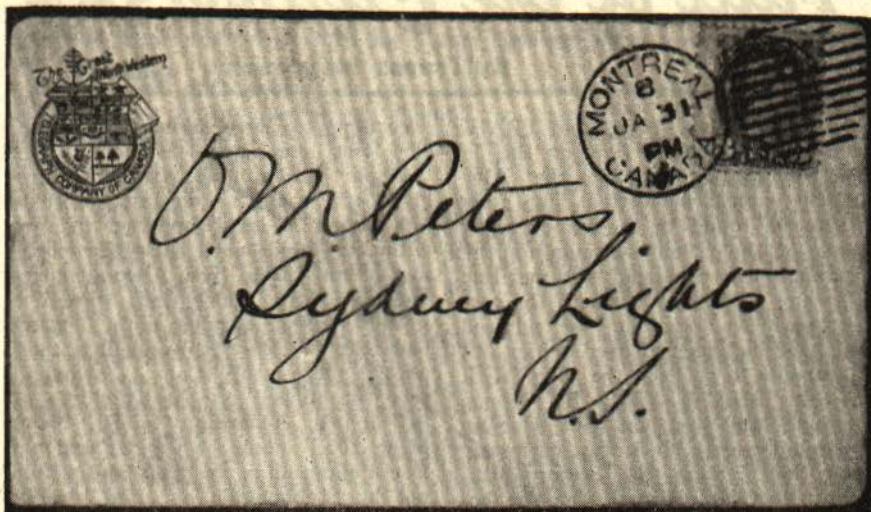 The Great North Western
TELEGRAPH COMPANY OF CANADA
MONTREAL
8
JA 31
PM
CANADA
O. M. Peters
Sydney Lights
N.S.